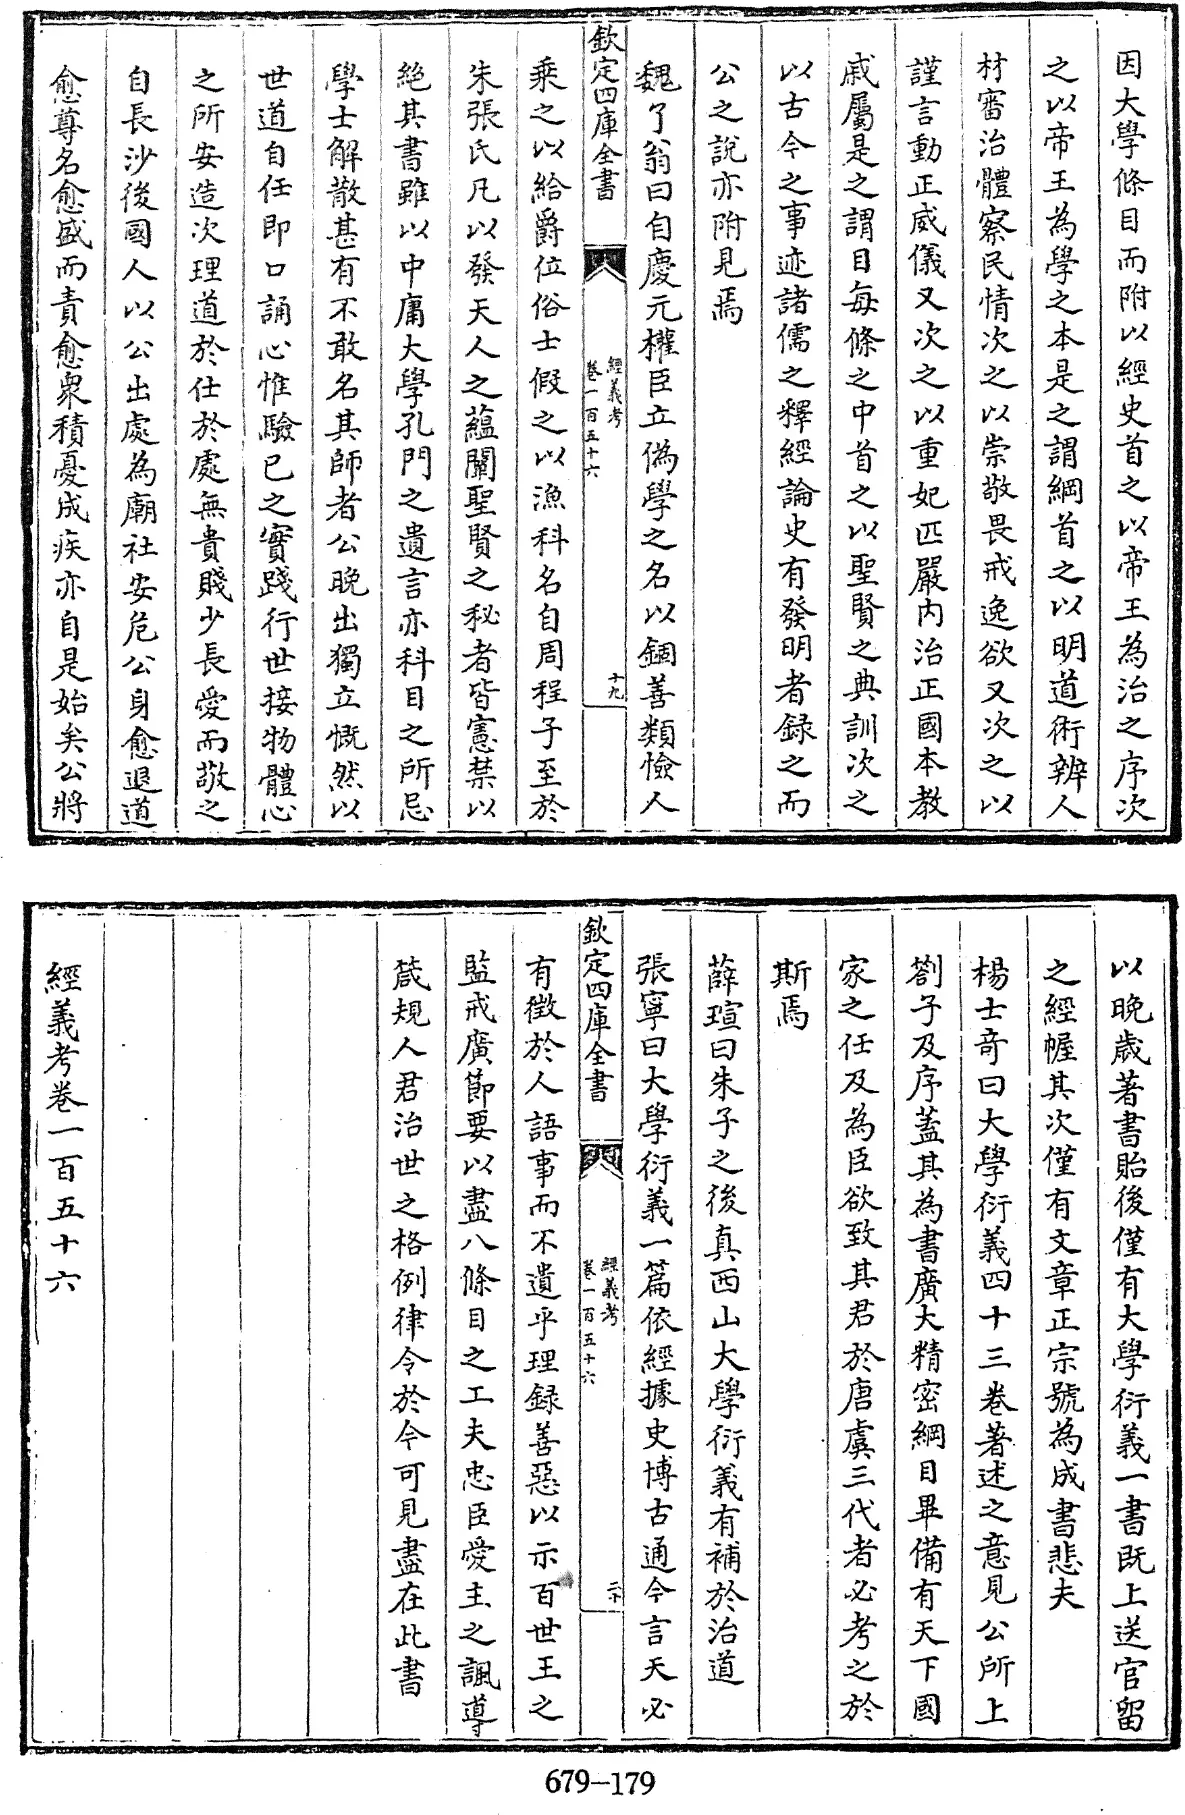 因大學條目而附以經史首之以帝王為治之序次
之以帝王為學之本是之謂綱首之以明道術辨人
材審治體察民情次之以崇敬畏戒逸欲又次之以
謹言動正威儀又次之以重妃匹嚴内治正國本教
戚屬是之謂目每條之中首之以聖賢之典訓次之
以古今之事迹諸儒之釋經論史有發明者録之而
公之說亦附見焉
魏了翁曰自慶元權臣立偽學之名以錮善類憸人
欽定四庫全書
經義考
卷一百五十六
十九
乘之以給爵位俗士假之以漁科名自周程子至於
朱張氏凡以發天人之蘊闡聖賢之秘者皆憲禁以
絶其書雖以中庸大學孔門之遺言亦科目之所忌
學士解散甚有不敢名其師者公晚出獨立慨然以
世道自任即口誦心惟驗已之實踐行世接物體心
之所安造次理道於仕於處無貴賤少長愛而敬之
自長沙後國人以公出處為廟社安危公身愈退道
愈尊名愈盛而責愈衆積憂成疾亦自是始矣公將
以晚歲著書貽後僅有大學衍義一書既上送官留
之經幄其次僅有文章正宗號為成書悲夫
楊士奇曰大學衍義四十三卷著述之意見公所上
劄子及序蓋其為書廣大精密綱目畢備有天下國
家之任及為臣欲致其君於唐虞三代者必考之於
斯焉
薛瑄曰朱子之後真西山大學衍義有補於治道
張寧曰大學衍義一篇依經據史博古通今言天必
欽定四庫全書
經義考
卷一百五十六
二十
有徵於人語事而不遺乎理録善惡以示百世王之
監戒廣節要以盡八條目之工夫忠臣愛主之諷導
箴規人君治世之格例律令於今可見盡在此書
經義考卷一百五十六
679-179